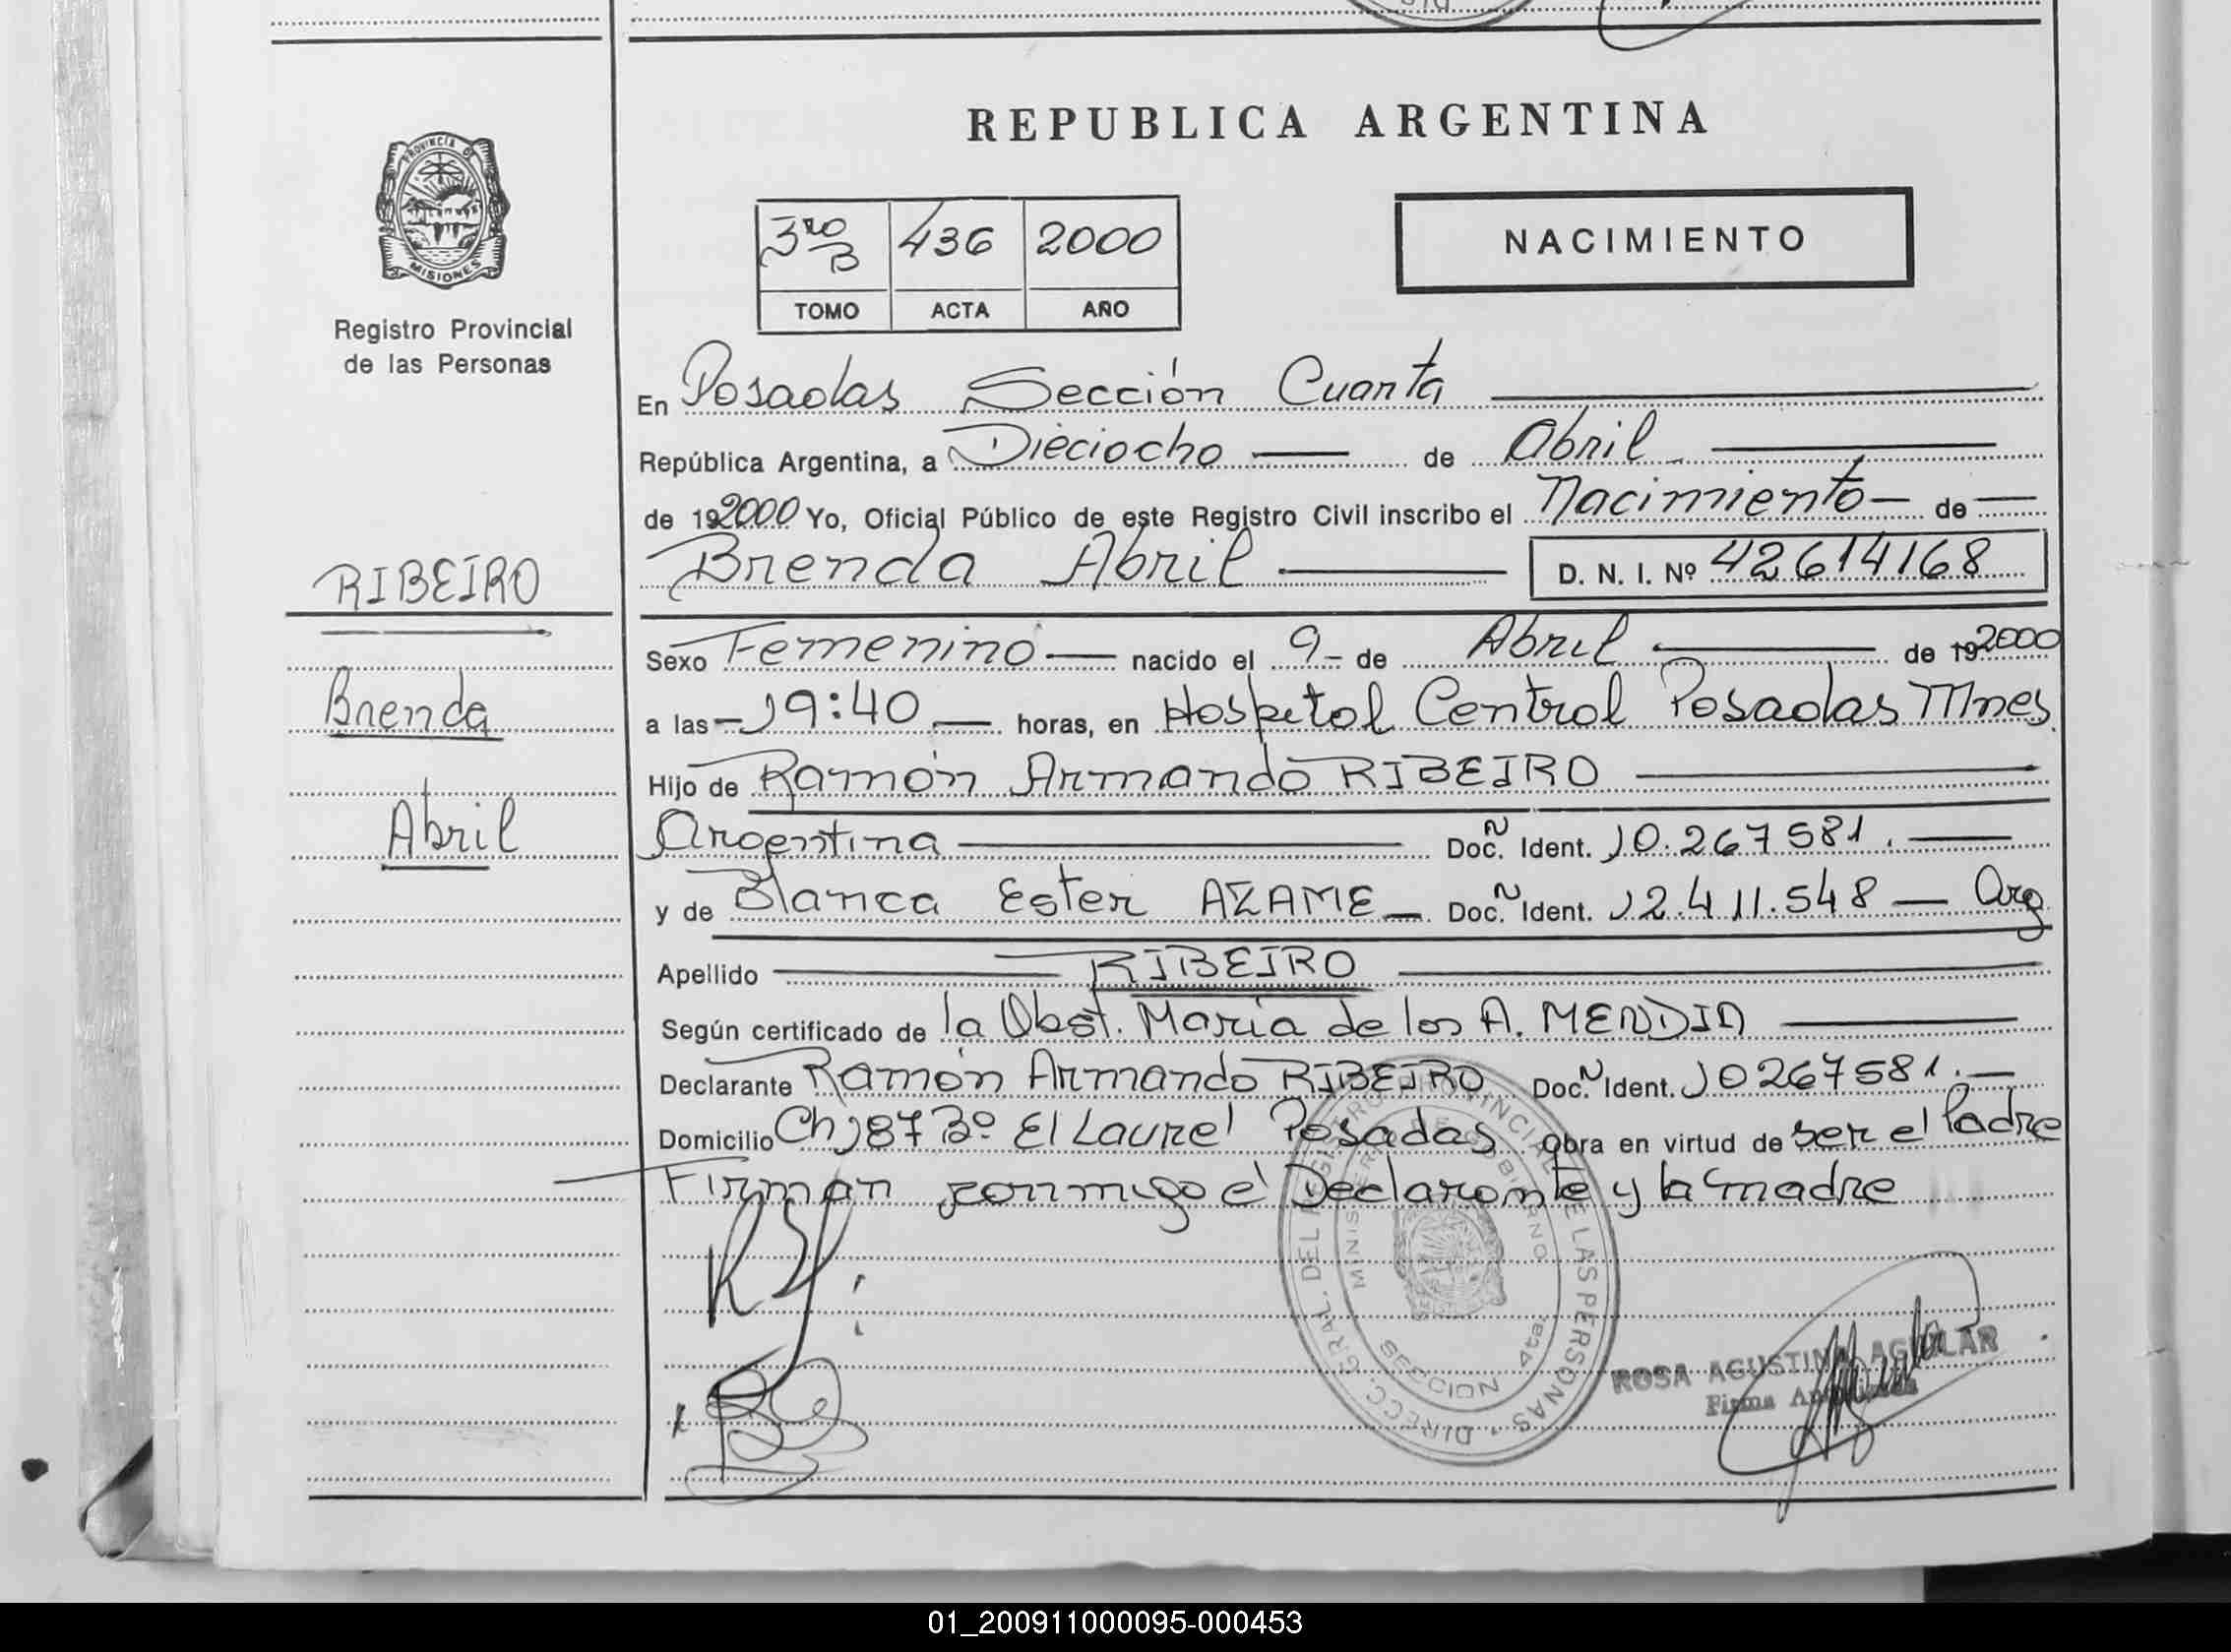 PROVINCIA DE
MISIONES
Registro Provincial
de las Personas
RIBEIRO
Brenda
Abril
REPUBLICA ARGENTINA
3ro B 436 2000
TOMO ACTA AÑO
NACIMIENTO
En Posadas Sección Cuarta
República Argentina, a Dieciocho de Abril
de 192000 Yo, Oficial Público de este Registro Civil inscribo el Nacimiento de
Brenda Abril D. N. I. Nº 42614168
Sexo Femenino nacido el 9 de Abril de 192000
a las 19:40 horas, en Hospital Central Posadas Mnes.
Hijo de Ramón Armando RIBEIRO
Argentina Doc. Ident. 10.267581.
y de Blanca Ester AZAME Doc. Ident. 12.411.548 Arg
Apellido RIBEIRO
Según certificado de la Obst. María de los A. MENDIA
Declarante Ramón Armando RIBEIRO Doc. Ident. 10267581.
Domicilio Ch 187 Bº El Laurel Posadas Obra en virtud de ser el Padre
Firman conmigo el Declarante y la madre
DIRECC. GRAL. DEL REGISTRO PROVINCIAL DE LAS PERSONAS
MINISTERIO DE GOBIERNO
SECCION 4ta.
ROSA AGUSTINA AGUILAR
Firma
01_200911000095-000453